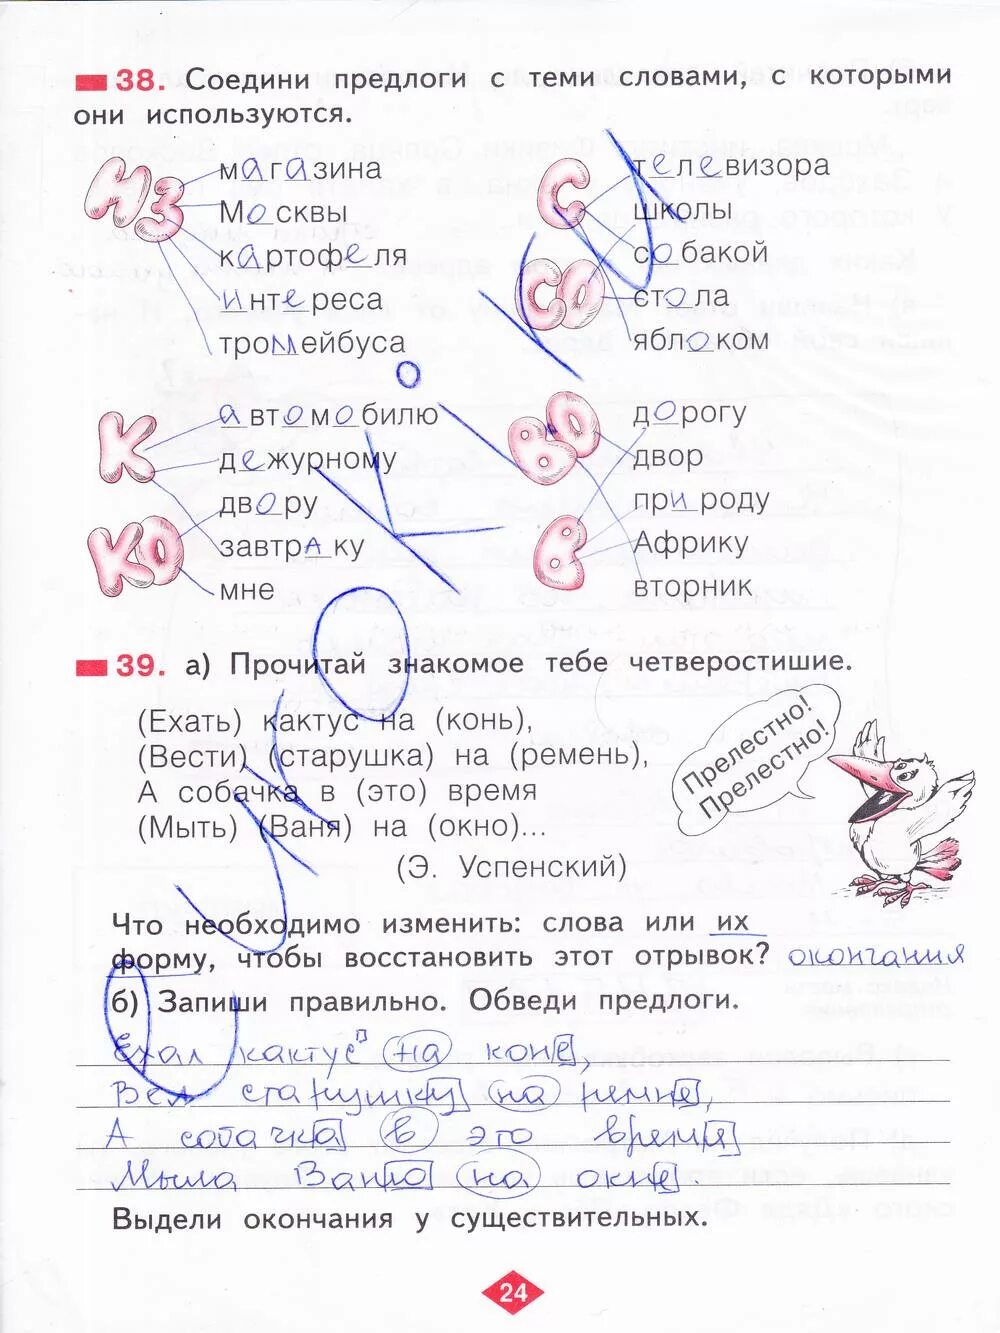 38. Соедини предлоги с теми словами, с которыми
они используются.
ИЗ
магазина
Москвы
картофеля
интереса
тромейбуса
С
СО
телевизора
школы
собакой
стола
яблоком
К
КО
автомобилю
дежурному
двору
завтраку
мне
ВО
В
дорогу
двор
природу
Африку
вторник
39. а) Прочитай знакомое тебе четверостишие.
(Ехать) кактус на (конь),
(Вести) (старушка) на (ремень),
А собачка в (это) время
(Мыть) (Ваня) на (окно)...
(Э. Успенский)
Прелестно!
Прелестно!
Что необходимо изменить: слова или их
форму, чтобы восстановить этот отрывок? окончания
б) Запиши правильно. Обведи предлоги.
Ехал кактус на коне,
Вел старушку на ремне,
А собачка в это время
Мыла Ваню на окне
Выдели окончания у существительных.
24